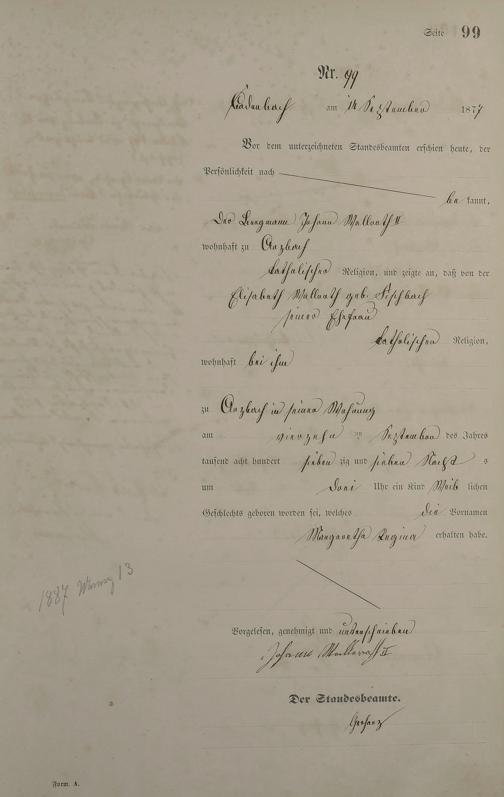 Seite 99
Nr. 99
Cadenbach am 14 September 1877
Vor dem unterzeichneten Standesbeamten erschien heute, der
Persönlichkeit nach
be kannt,
Der Bergmann Johann Wallroth II
wohnhaft zu Arzbach
katholischer Religion, und zeigte an, daß von der
Elisabeth Wallroth geb. Fischbach
seiner Ehefrau
katholischen Religion,
wohnhaft bei ihm
zu Arzbach in seiner Wohnung
am vierzehn ten September des Jahres
tausend acht hundert sieben zig und sieben Nachts
um drei Uhr ein Kind Weib lichen
Geschlechts geboren worden sei, welches die Vornamen
Margaretha Regina erhalten habe.
1887 13
Vorgelesen, genehmigt und unterschrieben
Johann Wallroth II
Der Standesbeamte.
Form. A.